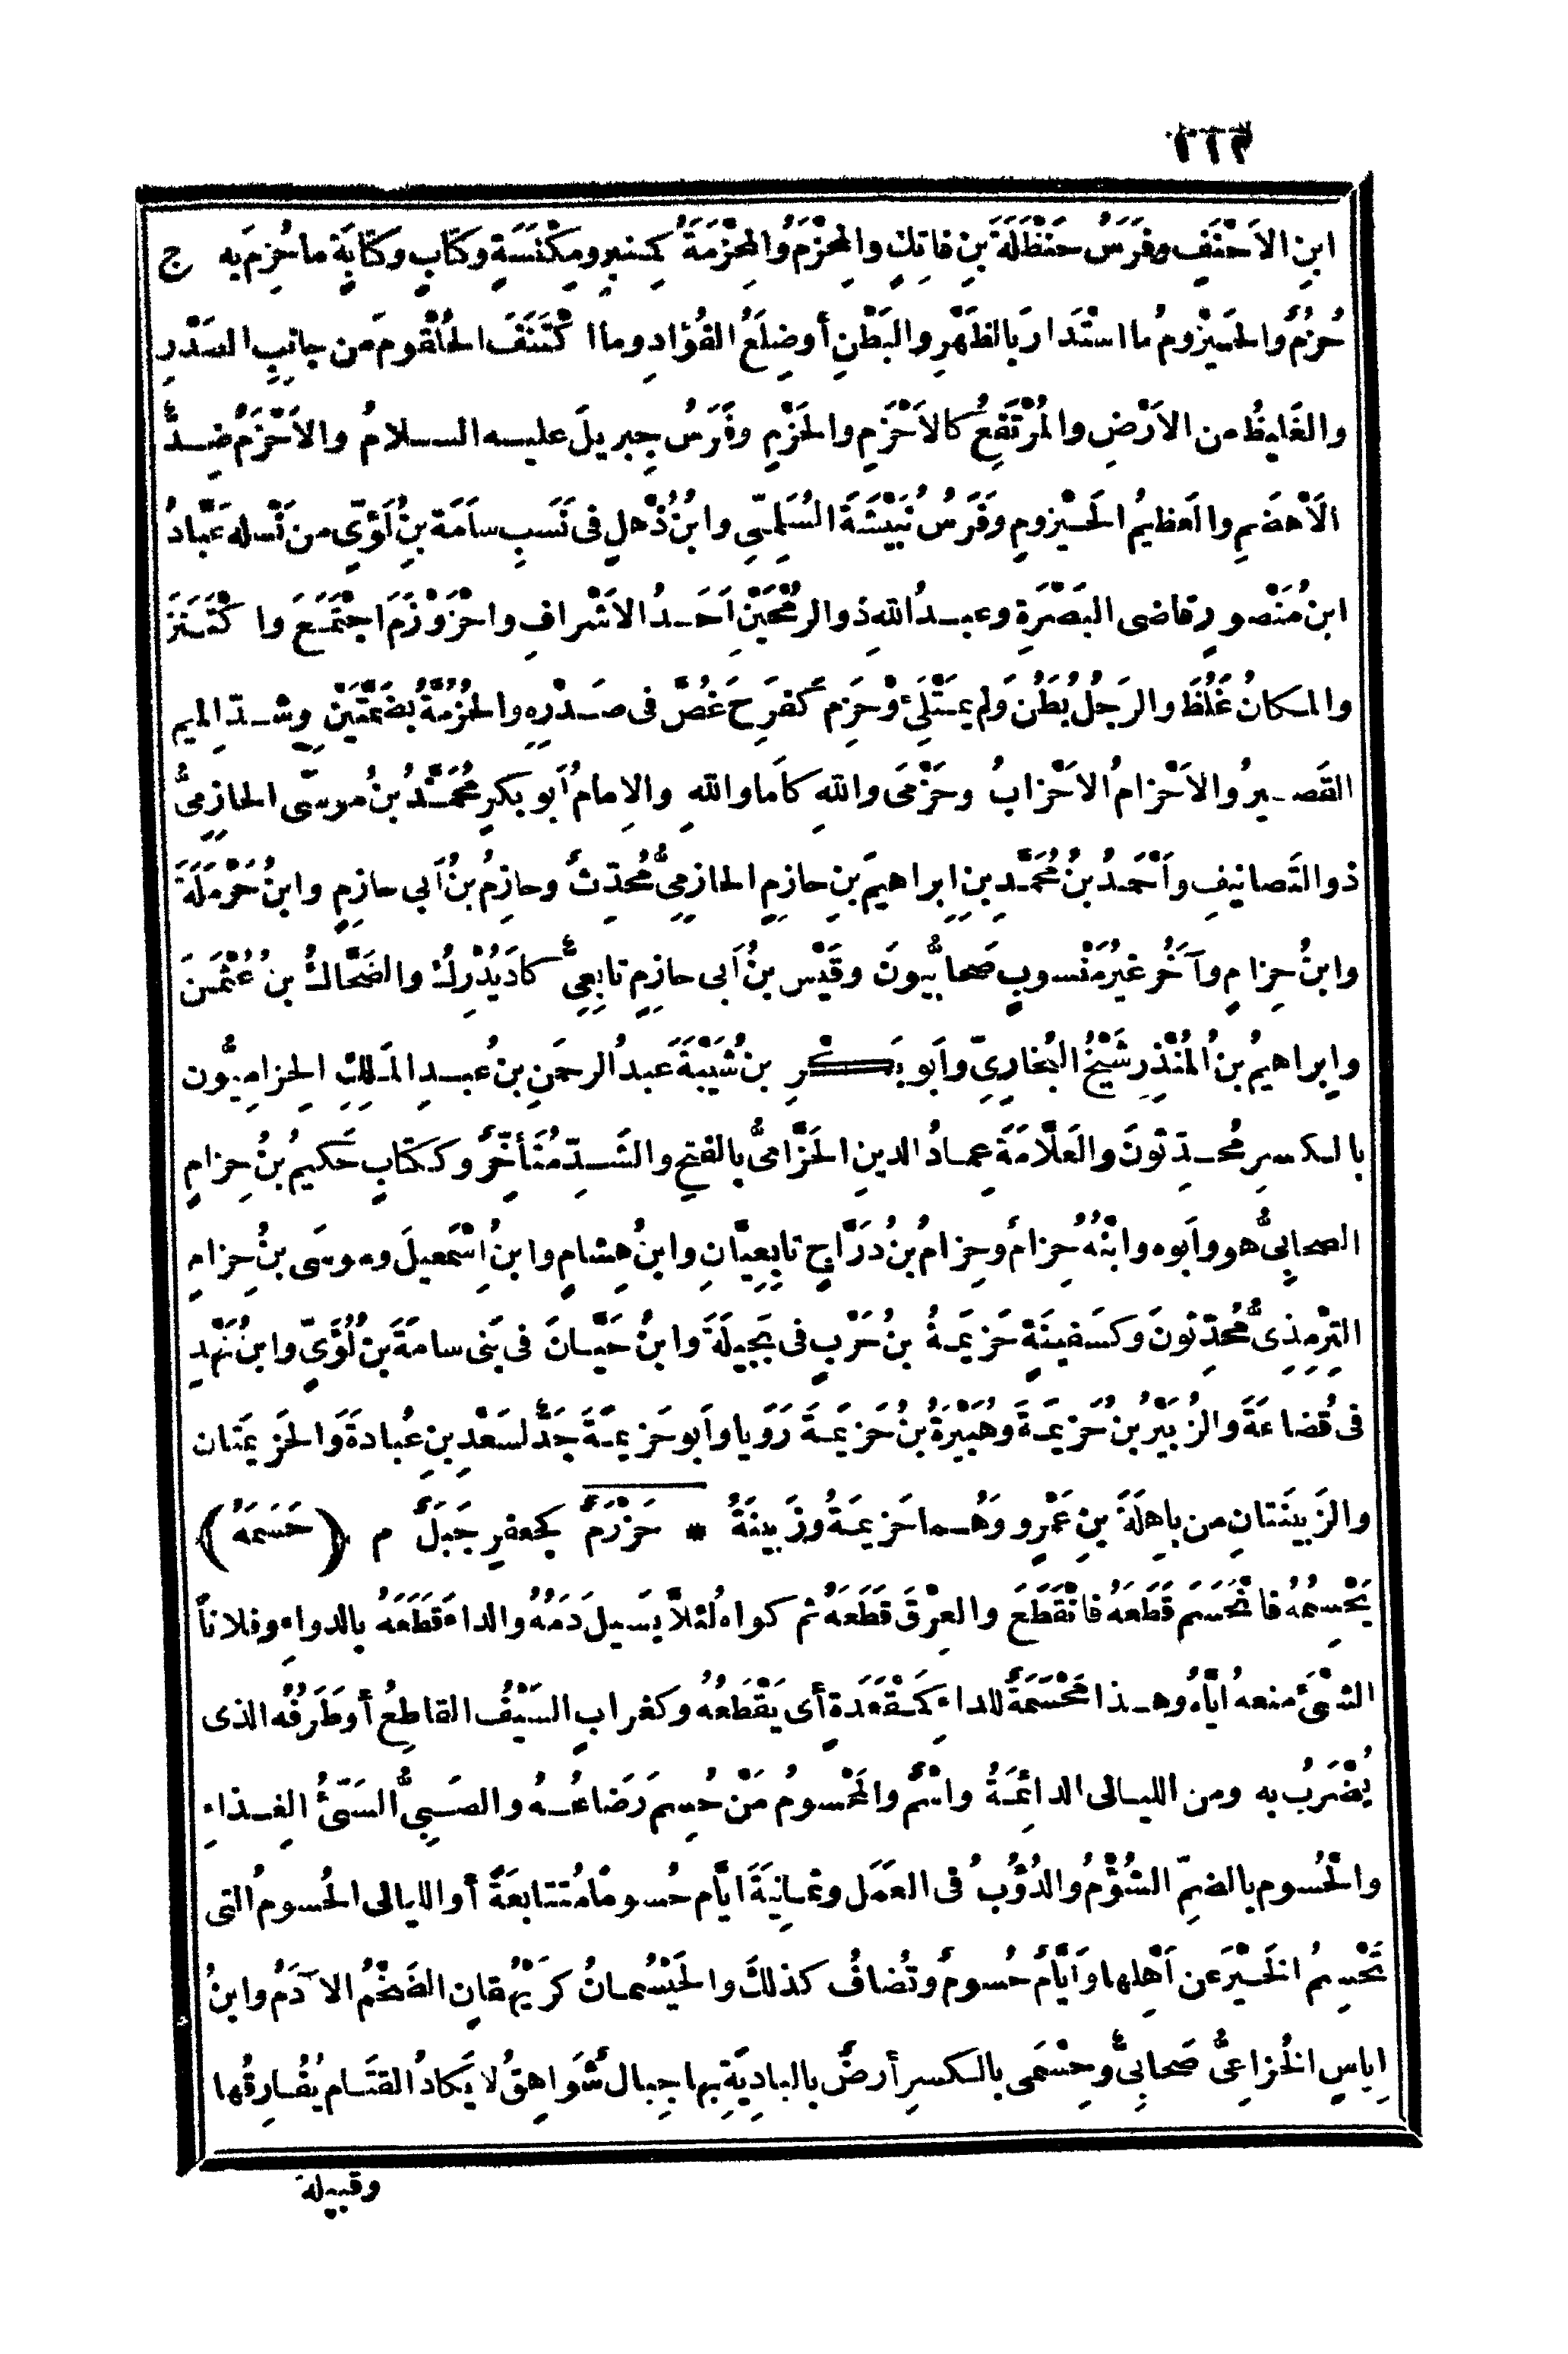 ابنِ الاَحْنَفِ وفَرَسُ حَنْظَلَةَ بنِ فاتِكٍ والمِحْزَمُ والمِحْزَمَةُ كمِنبرٍ ومِكْنَسَةٍ وكِتَابٍ وكِتَابَةٍ ما حُزِمَ به ج
حُزُمٌ والحَيْزُومُ ما اسْتَدَارَ بالظَهْرِ والبَطْنِ أوضِلَعُ الفُؤادِ وما ا كْتَنَفَ الحُلْقُومَ من جانِبِ الصَدْرِ
والغَلِيظُ من الاَرْضِ والمُرْتَفِعُ كالاَحْزَمِ والحَزْمِ وفَرَسُ جِبريلَ عليه السلامُ والاَحْزَمُ ضِدُّ
الاَهْضَمِ والعظيمُ الحَيْزومِ وفَرَسُ نُبَيْشَةَ السُلَمِيّ وابنُ ذُهْلٍ فى نَسَبِ سامَةَ بنِ لُؤَيٍّ من نَسْله عَبَّادُ
ابنُ مَنْصورٍ قاضى البَصْرَةِ وعبدُ اللهِ ذو الرُمْحَيْنِ اَحَدُ الاَشْرافِ واحْزَوْزَمَ اجْتَمَعَ وا كْتَنَزَ
والمكانُ غَلُظَ والرَجُلُ بَطُنَ ولم يَمْتَلِئْ وحَزِمَ كفَرِحَ غَصَّ فى صَدْرِهِ والحُزُمَّةُ بضَمَّتَيْنِ وشدِّ الميم
القَصيرُ والاَحْزامُ الاَحْزابُ وحَزْمَى واللهِ كاَما واللهِ والاِمامُ اَبو بكرٍ مُحَمَّدُ بنُ موسَى الحازِمِىُّ
ذو التَصانيفِ واَحْمَدُ بنُ مُحَمَّدِ بنِ اِبراهيمَ بنِ حازِمٍ الحازِمِىُّ مُحَدِّثٌ وحازِمُ بنُ اَبى حازِمٍ وابنُ حَرْمَلَةَ
وابنُ حِزامٍ وآخَرُ غيرُ مَنْسوبٍ صَحابِيُّونَ وقَيْسُ بنُ اَبى حازِمٍ تابِعِىٌّ كادَ يُدْرِكُ والضَحَّاكُ بنُ عُثْمَنَ
واِبراهيمُ بنُ المُنْذِرِ شَيْخُ البُخارِىِّ واَبو بَكْرِ بنُ شَيْبَةَ عَبدُ الرحمَنِ بنُ عبدِ المَلِكِ الحِزامِيُّون
بالكسرِ مُحدِّثونَ والعَلَّامَةَ عِمادُ الدينِ الحَزَّامِىُّ بالفتحِ والشَدِّ مُتَأَخِّرٌ وككِتَابٍ حَكيمُ بنُ حِزامٍ
الصحابِىُّ هو واَبوه وابْنُهُ حِزامٌ وحِزامُ بنُ دَرَّاجٍ تابِعِيَّانِ وابنُ هِشامٍ وابنُ اِسْمَعيلَ وموسَى بنُ حِزامٍ
التِرْمِذِىُّ مُحَدِّثونَ وكسَفينَةٍ حَزيمَةُ بنُ حَرْبٍ فى بَجيلَةَ وابنُ حَيَّانَ فى بَنى سامَةَ بنِ لُؤَىٍّ وابنُ نَهْدٍ
فى قُضاعَةَ والزُبَيْرُ بنُ حَزيمَةَ وهُبَيْرَةُ بنُ حَزيمَةَ رَوَيا واَبو حَزيمَةَ جَدٌّ لسَعْدِ بنِ عُبادَةَ والحَزيمَتان
والزَبينَتانِ من باهِلَةَ بنِ عَمْرٍو وهُما حَزيمَةُ وزَبينَةُ * حَزْرَمٌ كجعفرٍ جَبَلٌ م ﴿حَسَمَهُ﴾
يَحْسِمُهُ فانْحَسَمَ قَطَعَهُ فانْقَطَعَ والعِرْقَ قَطَعَهُ ثم كواه لئلاَّ يَسيلَ دَمُهُ والداءَ قَطَعَهُ بالدواءِ وفلاناً
الشىْءَ منعه ايَّاه وهذا مَحْسَمَةٌ للداءِ كمَقْعَدَةٍ أى يَقْطَعُهُ وكغرابٍ السَيْفُ القاطِعُ أو طَرَفُه الذى
يُضْرَبُ به ومن الليالى الدائِمَةُ واسْمٌ والمَحْسومُ مَنْ حُسِمَ رَضاعُهُ والصَبِىُّ السَيّئُ الغِذاءِ
والحُسوم بالضمِّ الشُؤْمُ والدُؤُبُ فى العَمَل وثمانِيَةَ ايَّام حُسوماً مُتتابعَةً أو الليالى الحُسومُ التى
تَحْسِمُ الخَيْرَ عن اَهْلِها واَيَّامٌ حُسومٌ وتُضافُ كذلكَ والحَيْسُمانُ كرَيْهُقانٍ الضَخْمُ الآدَمُ وابنُ
اِياسٍ الخُزاعِىُّ صَحابِىٌّ وحِسْمَى بالكسرِ أرضٌ بالبادِيَةِ بها جِبالٌ شَواهِقُ لا يَكادُ القَتَام يُفارِقُها
وقبيلة